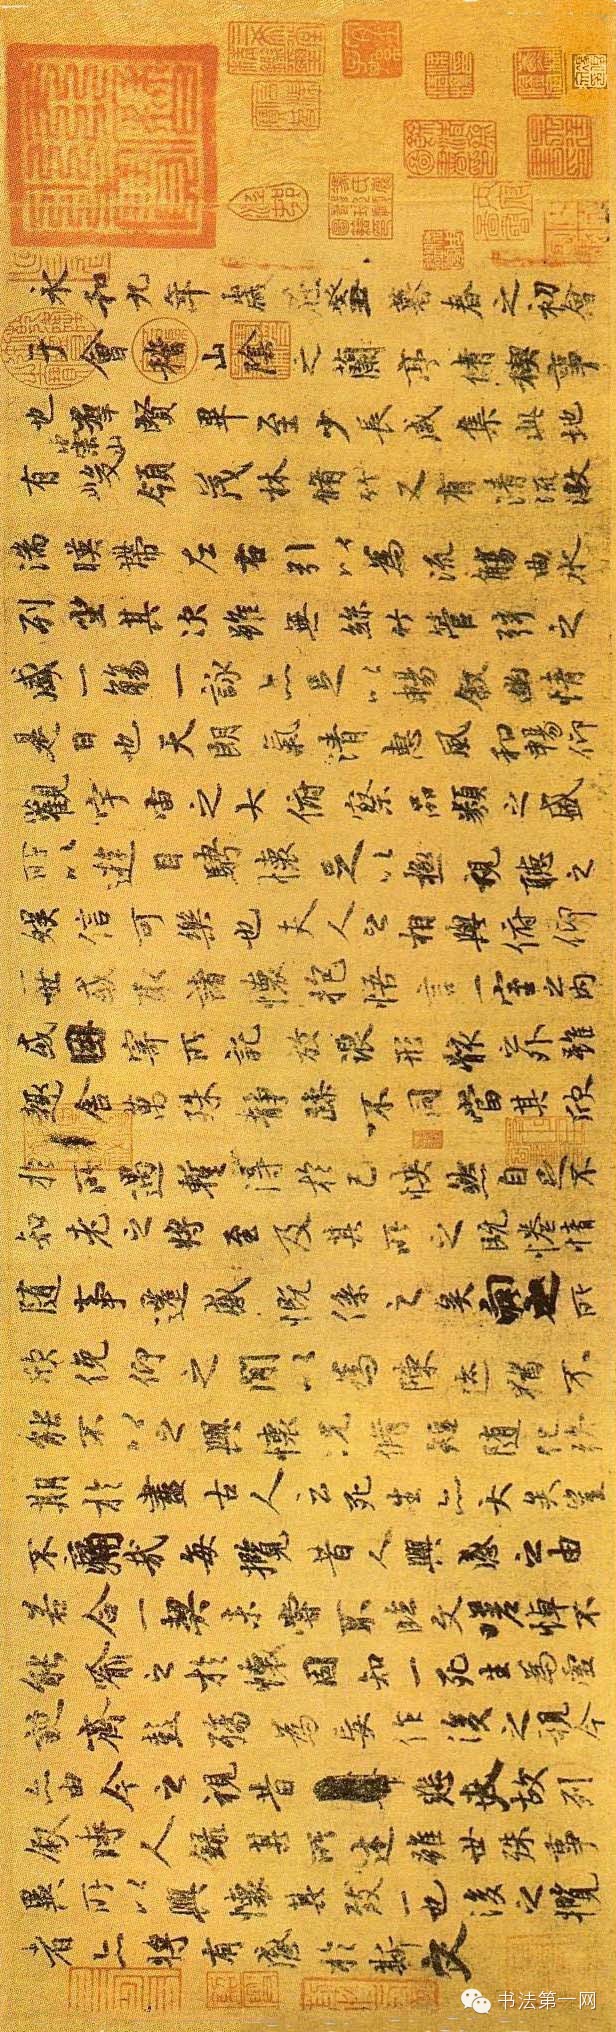 永和九年歲在癸丑暮春之初會
于會稽山陰之蘭亭脩稧事
也羣賢畢至少長咸集此地
有崇山峻領茂林脩竹又有清流激
湍暎帶左右引以為流觴曲水
列坐其次雖無絲竹管弦之
盛一觴一詠亦足以暢敘幽情
是日也天朗氣清惠風和暢仰
觀宇宙之大俯察品類之盛
所以遊目騁懷足以極視聽之
娛信可樂也夫人之相與俯仰
一世或取諸懷抱悟言一室之內
或因寄所託放浪形骸之外雖
趣舍萬殊靜躁不同當其欣
於所遇暫得於己怏然自足不
知老之將至及其所之既惓情
隨事遷感慨係之矣向之所
欣俛仰之閒以為陳迹猶不
能不以之興懷況脩短隨化終
期於盡古人云死生亦大矣豈
不痛哉每攬昔人興感之由
若合一契未嘗不臨文嗟悼不
能喻之於懷固知一死生為虛
誕齊彭殤為妄作後之視今
亦由今之視昔悲夫故列
敘時人錄其所述雖世殊事
異所以興懷其致一也後之攬
者亦將有感於斯文
书法第一网